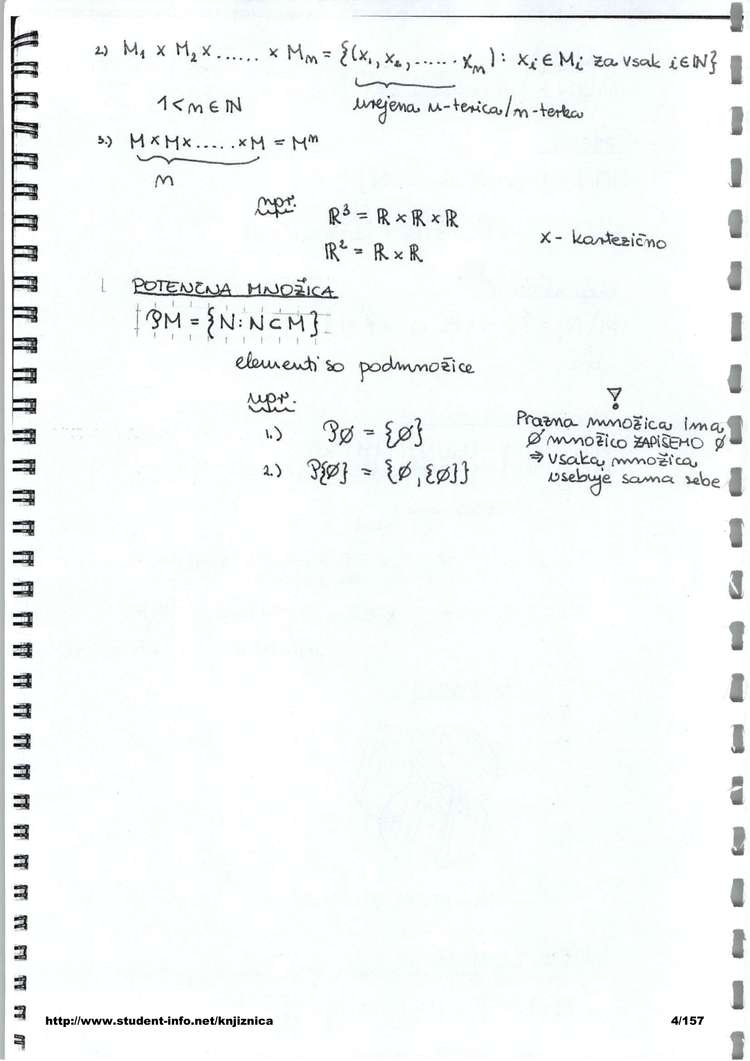 2.) M₁ × M₂ × ...... × Mₙ = {(x₁, x₂, ...... xₙ): xᵢ ∈ Mᵢ za vsak i∈ℕ}
1 < n ∈ ℕ urejena n-terica/n-terka
3.) M × M × ..... × M = Mⁿ
n
npr.
ℝ³ = ℝ × ℝ × ℝ
ℝ² = ℝ × ℝ
× - kartezično
POTENČNA MNOŽICA
𝒫M = {N: N ⊂ M}
elementi so podmnožice
npr.
1.) 𝒫∅ = {∅}
2.) 𝒫{∅} = {∅, {∅}}
!
Prazna množica ima
∅ množico ZAPIŠEMO ∅
⇒ vsaka množica
vsebuje sama sebe
http://www.student-info.net/knjiznica 4/157